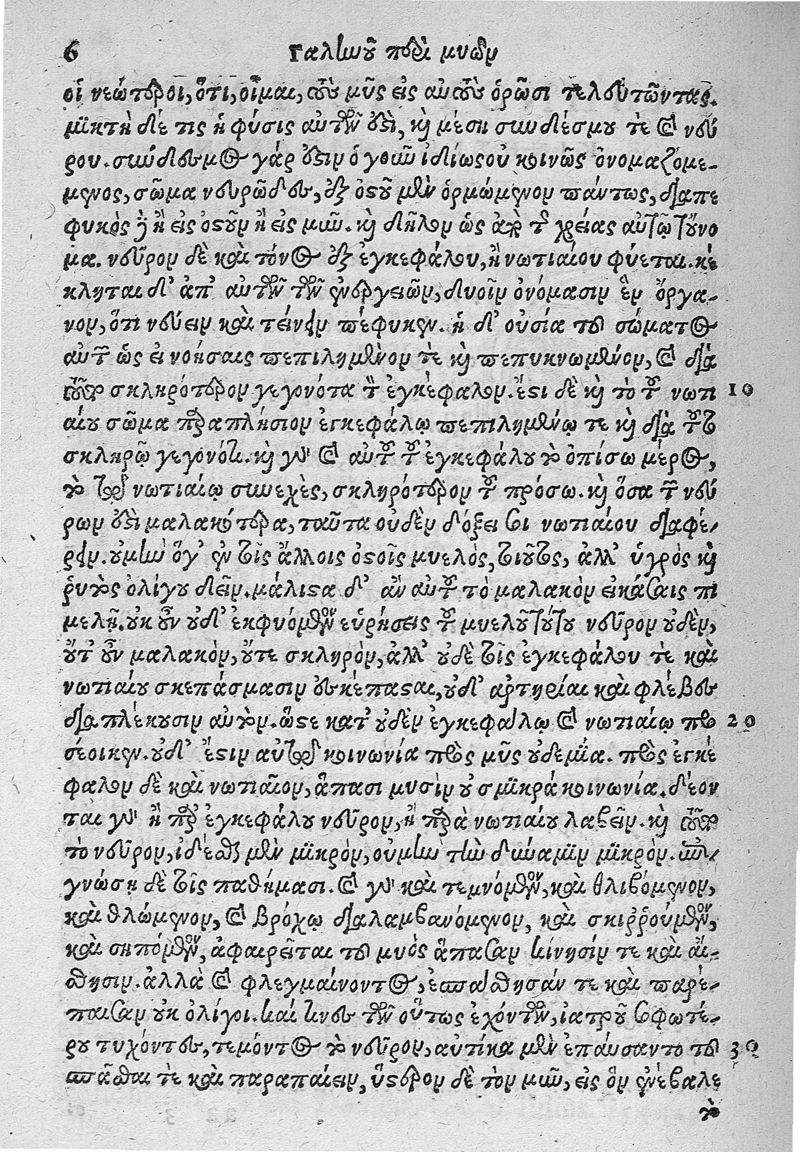 6 Γαληνοῦ περὶ μυῶν
οἱ νεώτεροι, ὅτι, οἶμαι, τοὺς μῦς εἰς αὐτοὺς ὁρῶσι τελευτῶντας.
μικτὴ δέ τις ἡ φύσις αὐτῶν ἐστὶ, καὶ μέση συνδέσμου τε καὶ νεύ
ρου. σύνδεσμος γάρ ἐστιν ὁ γοῦν ἰδίως οὐ κοινῶς ὀνομαζόμε-
μενος, σῶμα νευρῶδες, ἐξ ὀστοῦ μὲν ὁρμώμενον πάντως, διαπε
φυκὸς ἢ εἰς ὀστοῦν ἢ εἰς μῦν. καὶ δῆλον ὡς ἀπὸ τῆς χρείας αὐτῷ τοὔνο
μα. νεῦρον δὲ καὶ τόνος ἐξ ἐγκεφάλου, ἢ νωτιαίου φύεται. κέ
κληται δ' ἀπ' αὐτῶν τῶν ἐνεργειῶν, δυοῖν ὀνόμασιν ἓν ὄργα-
νον, ὅτι νεύειν καὶ τείνειν πέφυκεν. ἡ δ' οὐσία τοῦ σώματος
αὐτῆς ὡς εἰ νοήσαις πεπιλημένον τε καὶ πεπυκνωμένον, καὶ διὰ
τοῦτο σκληρότερον γεγονότα τὸν ἐγκέφαλον. ἔστι δὲ καὶ τὸ τοῦ νωτι 10
αίου σῶμα παραπλήσιον ἐγκεφάλῳ πεπιλημένῳ τε καὶ διὰ τοῦτο
σκληρῷ γεγονότι. καὶ γὰρ καὶ αὐτοῦ τοῦ ἐγκεφάλου τὸ ὀπίσω μέρος,
τὸ τῷ νωτιαίῳ συνεχὲς, σκληρότερον τοῦ πρόσω. καὶ ὅσα τῶν νεύ
ρων ἐστὶ μαλακώτερα, ταῦτα οὐδὲν δόξει σοι νωτιαίου διαφέ-
ρειν. οὐ μὴν ὅγ' ἐν τοῖς ἄλλοις ὀστοῖς μυελὸς, τοιοῦτος, ἀλλ' ὑγρὸς καὶ
ῥυτὸς ὀλίγου δεῖν. μάλιστα δ' ἂν αὐτοῦ τὸ μαλακὸν εἰκάσαις πι
μελῇ. οὐκ οὖν οὐδ' ἐκφυόμενον εὑρήσεις τοῦ μυελοῦ τούτου νεῦρον οὐδὲν,
οὔτ' οὖν μαλακὸν, οὔτε σκληρὸν, ἀλλ' οὐδὲ τοῖς ἐγκεφάλου τε καὶ
νωτιαίου σκεπάσμασιν ἐσκέπασται, οὐδ' ἀρτηρίαι καὶ φλέβες
διαπλέκουσιν αὐτὸν. ὥστε κατ' οὐδὲν ἐγκεφάλῳ καὶ νωτιαίῳ προ 20
σέοικεν. οὐδ' ἔστιν αὐτῷ κοινωνία πρὸς μῦς οὐδεμία. πρὸς ἐγκέ
φαλον δὲ καὶ νωτιαῖον, ἅπασι μυσὶν οὐ σμικρὰ κοινωνία. δέον
ται γὰρ ἢ παρ' ἐγκεφάλου νεῦρον, ἢ παρὰ νωτιαίου λαβεῖν. καὶ τοῦτο
τὸ νεῦρον, ἰδέσθαι μὲν μικρὸν, οὐ μὴν τὴν δύναμιν μικρόν.
γνώσῃ δὲ τοῖς παθήμασι. καὶ γὰρ καὶ τεμνόμενον, καὶ θλιβόμενον,
καὶ θλώμενον, καὶ βρόχῳ διαλαμβανόμενον, καὶ σκιῤῥούμενον,
καὶ σηπόμενον, ἀφαιρεῖται τοῦ μυὸς ἅπασαν κίνησίν τε καὶ αἴ-
σθησιν. ἀλλὰ καὶ φλεγμαίνοντος, ἐσπάσθησάν τε καὶ παρέ-
παισαν οὐκ ὀλίγοι. καί τινες τῶν οὕτως ἐχόντων, ἰατροῦ σοφωτέ-
ρου τυχόντες, τεμόντος τὸ νεῦρον, αὐτίκα μὲν ἐπαύσαντο τοῦ 30
σπᾶσθαι τε καὶ παραπαίειν, ὕστερον δὲ τὸν μῦν, εἰς ὃν ἐνέβαλε
τὸ